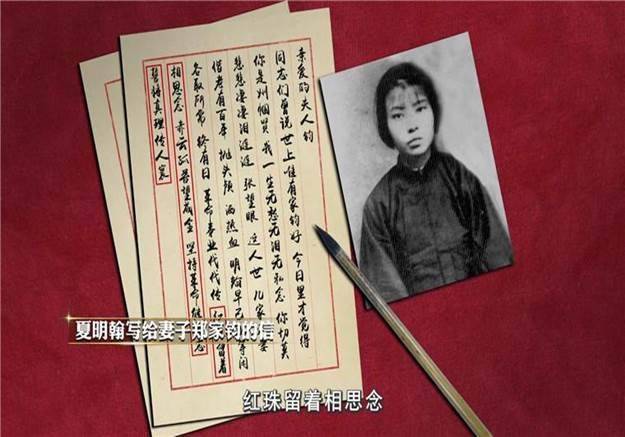 亲爱的夫人钧
同志们曾说世上唯有家钧好 今日里才觉得
你是巾帼贤 我一生无愁无泪无私念 你切莫
悲悲凄凄泪涟涟 张望眼 这人世 几家 妻
偕老有百年 抛头颅 洒热血 明翰早已 等闲
各取所需 终有日 革命事业代代传 红 留着
相思念 赤云孤苦望成全 坚持革命
誓将真理传人寰
夏明翰写给妻子郑家钧的信
红珠留着相思念